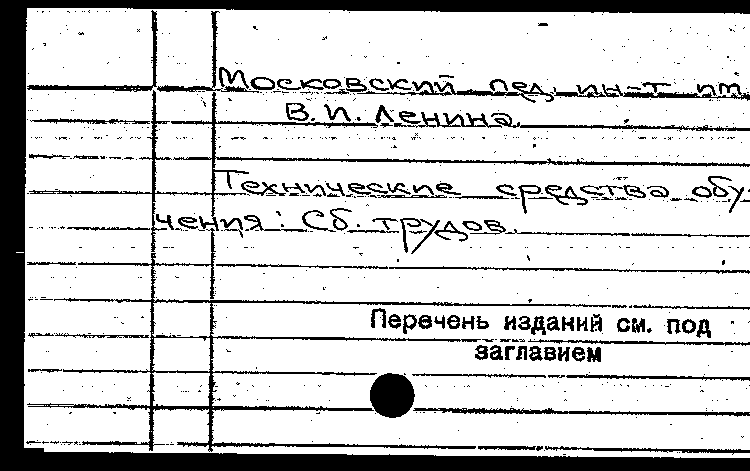 Московский пед. ин-т им.
В. И. Ленина.
Технические средства обу-
чения : Сб. трудов.
Перечень изданий см. под
заглавием